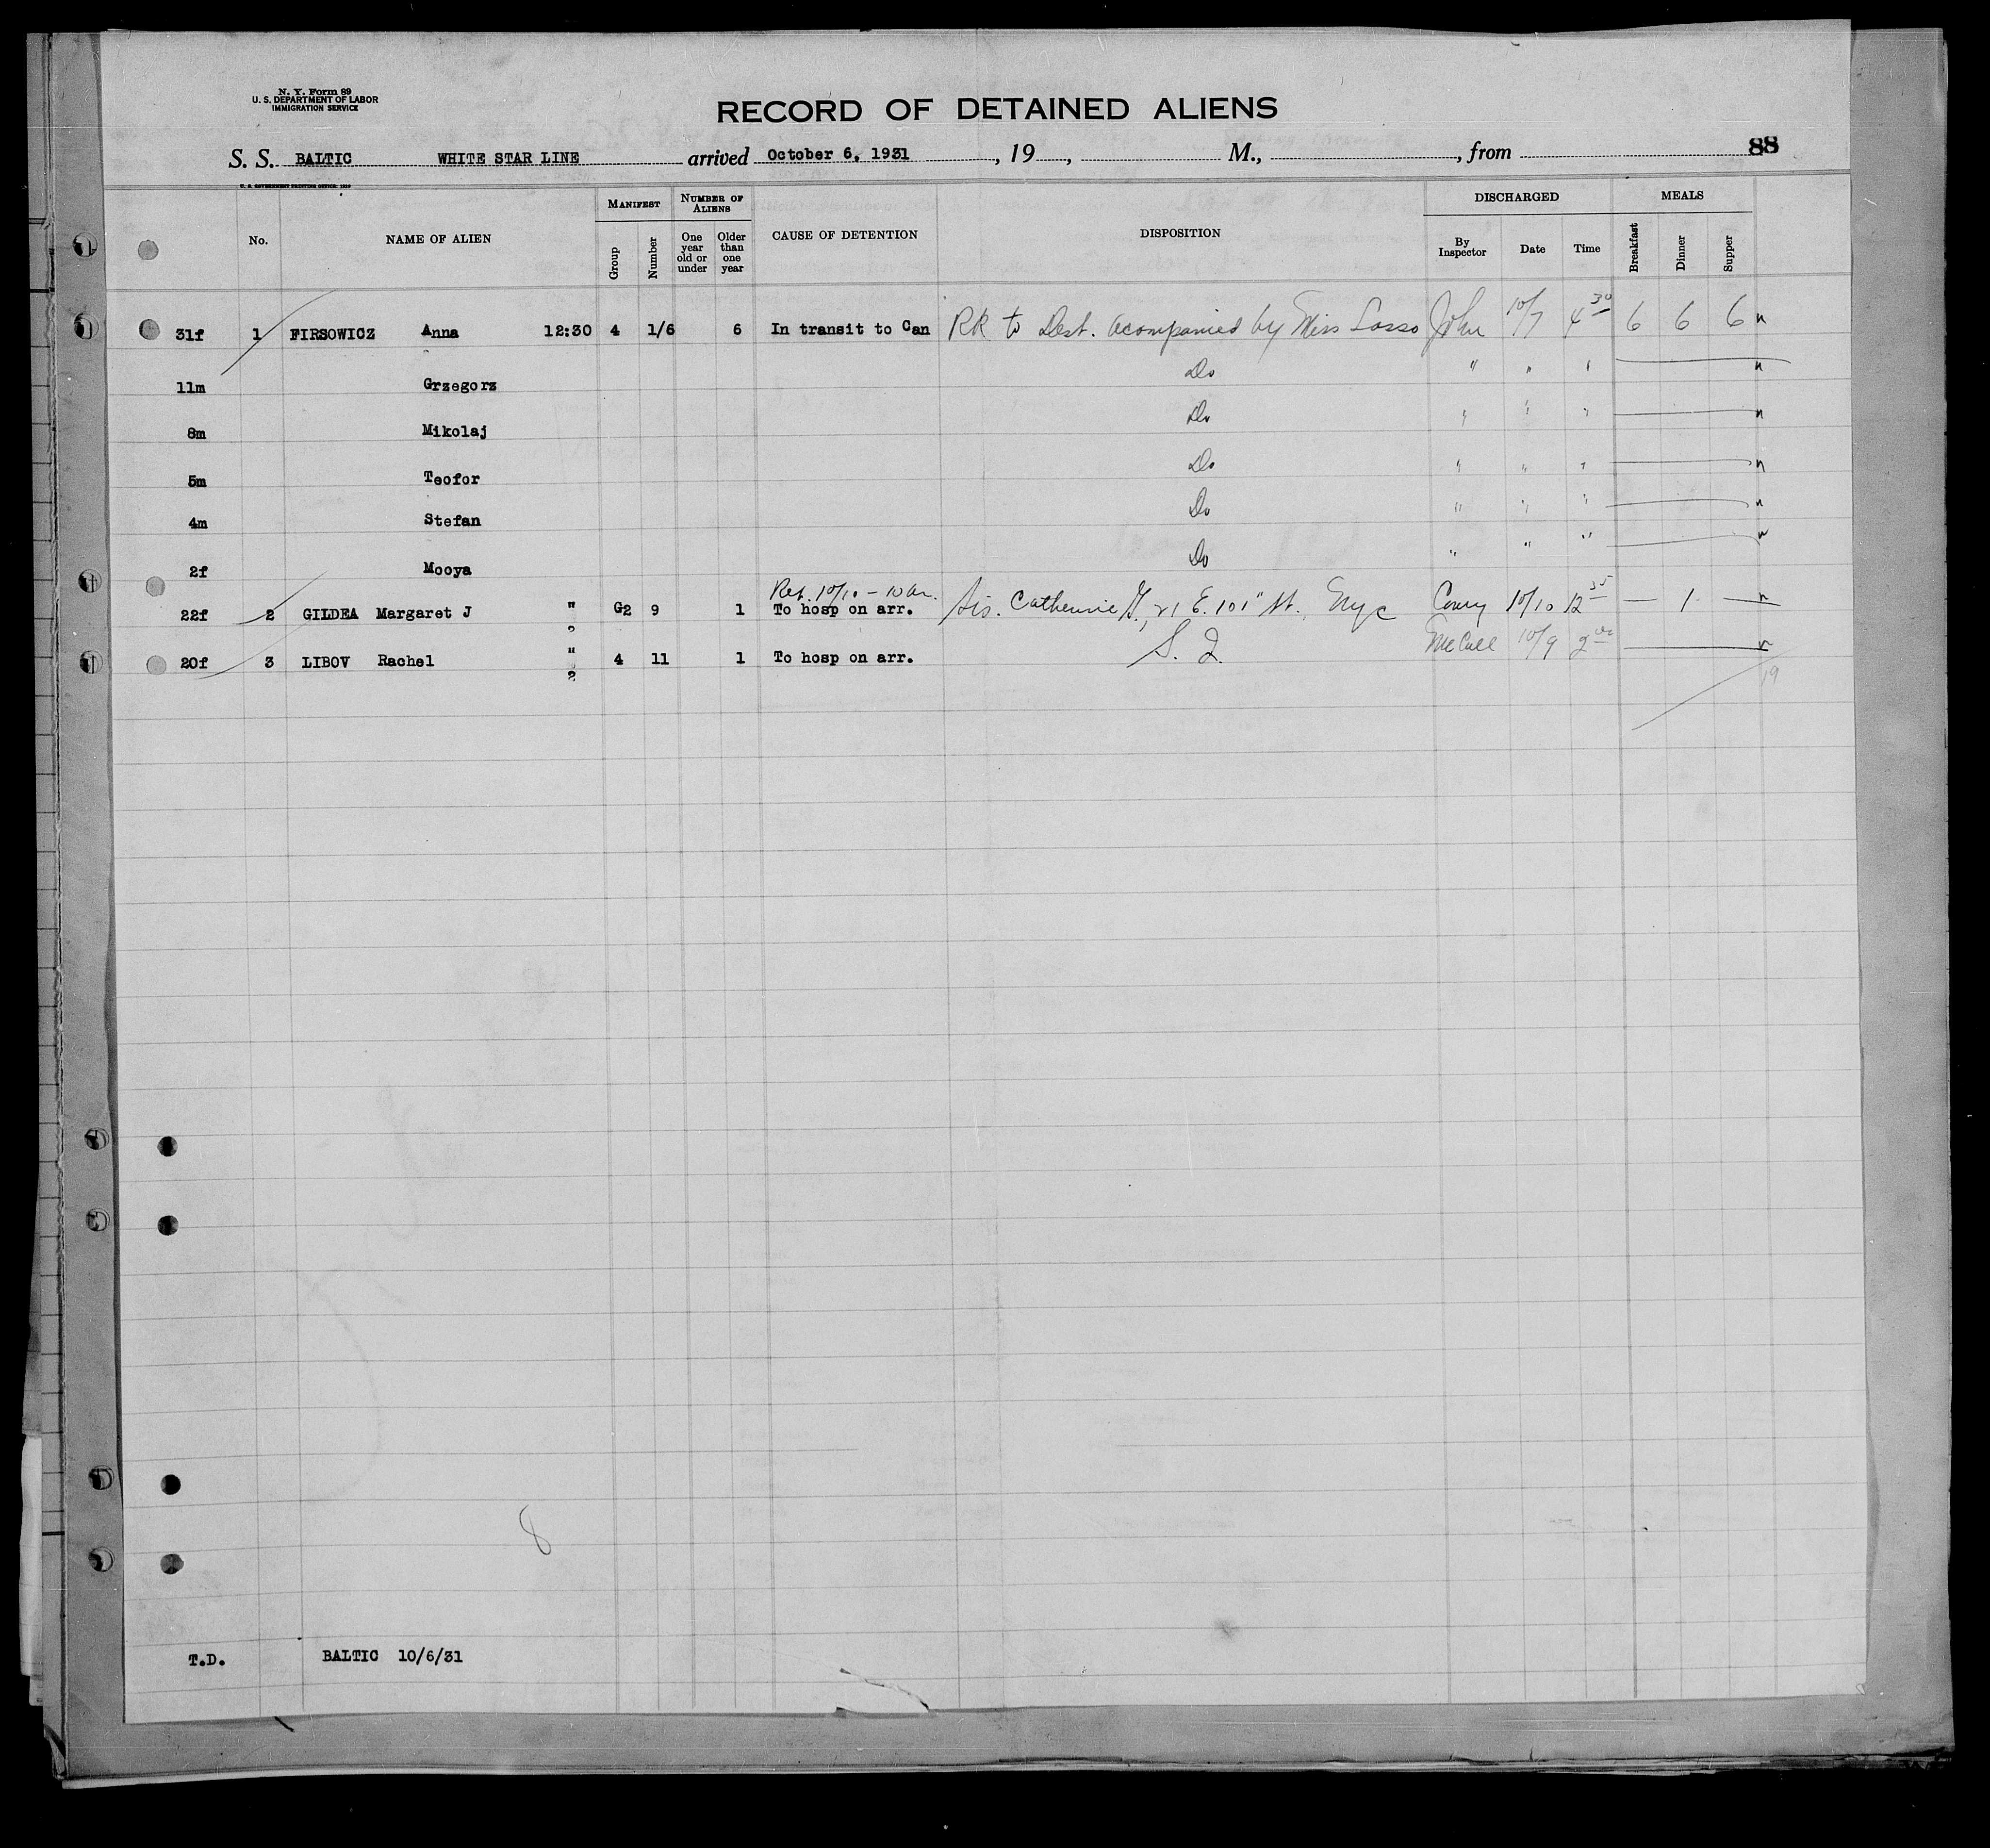 N. Y. Form 89
U. S. DEPARTMENT OF LABOR
IMMIGRATION SERVICE
RECORD OF DETAINED ALIENS
S. S. BALTIC WHITE STAR LINE arrived October 6, 1931, 19 , M., , from 88
U. S. GOVERNMENT PRINTING OFFICE: 1929
No. NAME OF ALIEN MANIFEST Group Number NUMBER OF ALIENS One year old or under Older than one year CAUSE OF DETENTION DISPOSITION DISCHARGED By Inspector Date Time MEALS Breakfast Dinner Supper
31f 1 FIRSOWICZ Anna 12:30 4 1/6 6 In transit to Can RR to Dest. acompanied by Miss Sasso John 10/7 4 30 6 6 6 n
11m Grzegorz Do " " " n
8m Mikolaj Do " " " n
5m Teofor Do " " " n
4m Stefan Do " " " n
2f Mooya Do " " " n
Ret. 10/10 - 10 am.
22f 2 GILDEA Margaret J " G2 9 1 To hosp on arr. Sis. Catherine G., 21 E. 101" St., Nyc 10/10 12 35 — 1 — n
20f 3 LIBOV Rachel " 4 11 1 To hosp on arr. S. I. McCall 10/9 2 00 n
19
8
T.D. BALTIC 10/6/31